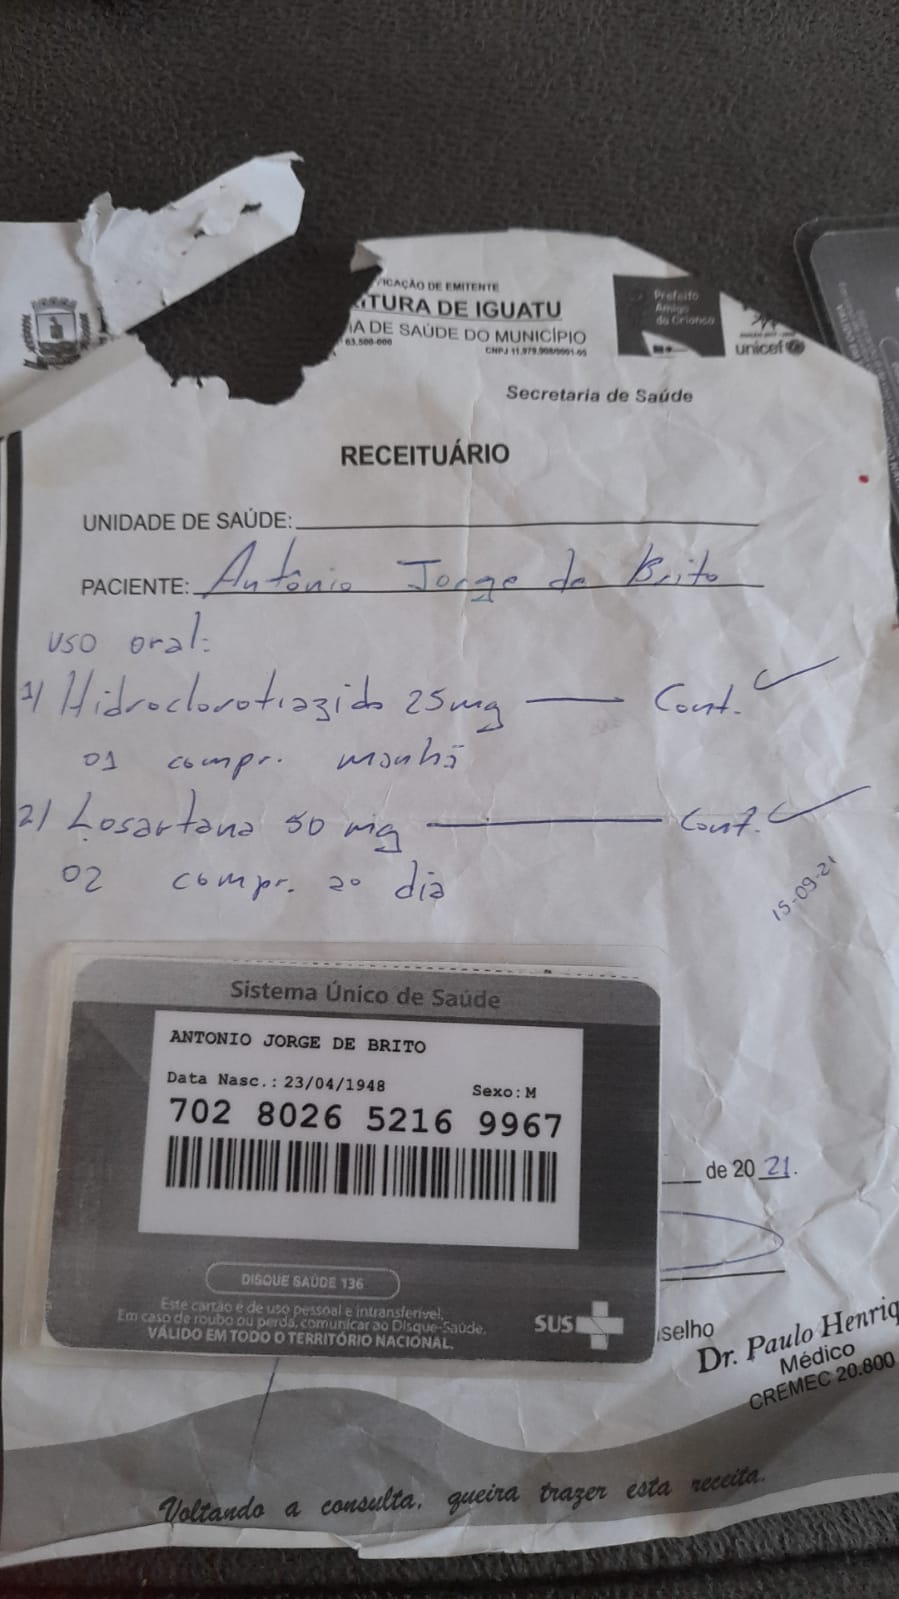 FICAÇÃO DE EMITENTE
ITURA DE IGUATU
IA DE SAÚDE DO MUNICÍPIO
63.500-000
CNPJ 11.979.908/0001-05
Prefeito
Amigo
da Criança
unicef
Secretaria de Saúde
RECEITUÁRIO
UNIDADE DE SAÚDE:
PACIENTE: Antônio Jorge de Brito
uso oral:
1) Hidroclorotiazida 25mg — Cont.
01 compr. manhã
2) Losartana 50 mg — Cont.
02 compr. ao dia
15-09-21
Sistema Único de Saúde
ANTONIO JORGE DE BRITO
Data Nasc.: 23/04/1948 Sexo: M
702 8026 5216 9967
DISQUE SAÚDE 136
Este cartão é de uso pessoal e intransferível.
Em caso de roubo ou perda, comunicar ao Disque-Saúde.
VÁLIDO EM TODO O TERRITÓRIO NACIONAL.
SUS
de 20 21.
selho
Dr. Paulo Henriq
Médico
CREMEC 20.800
Voltando a consulta, queira trazer esta receita.